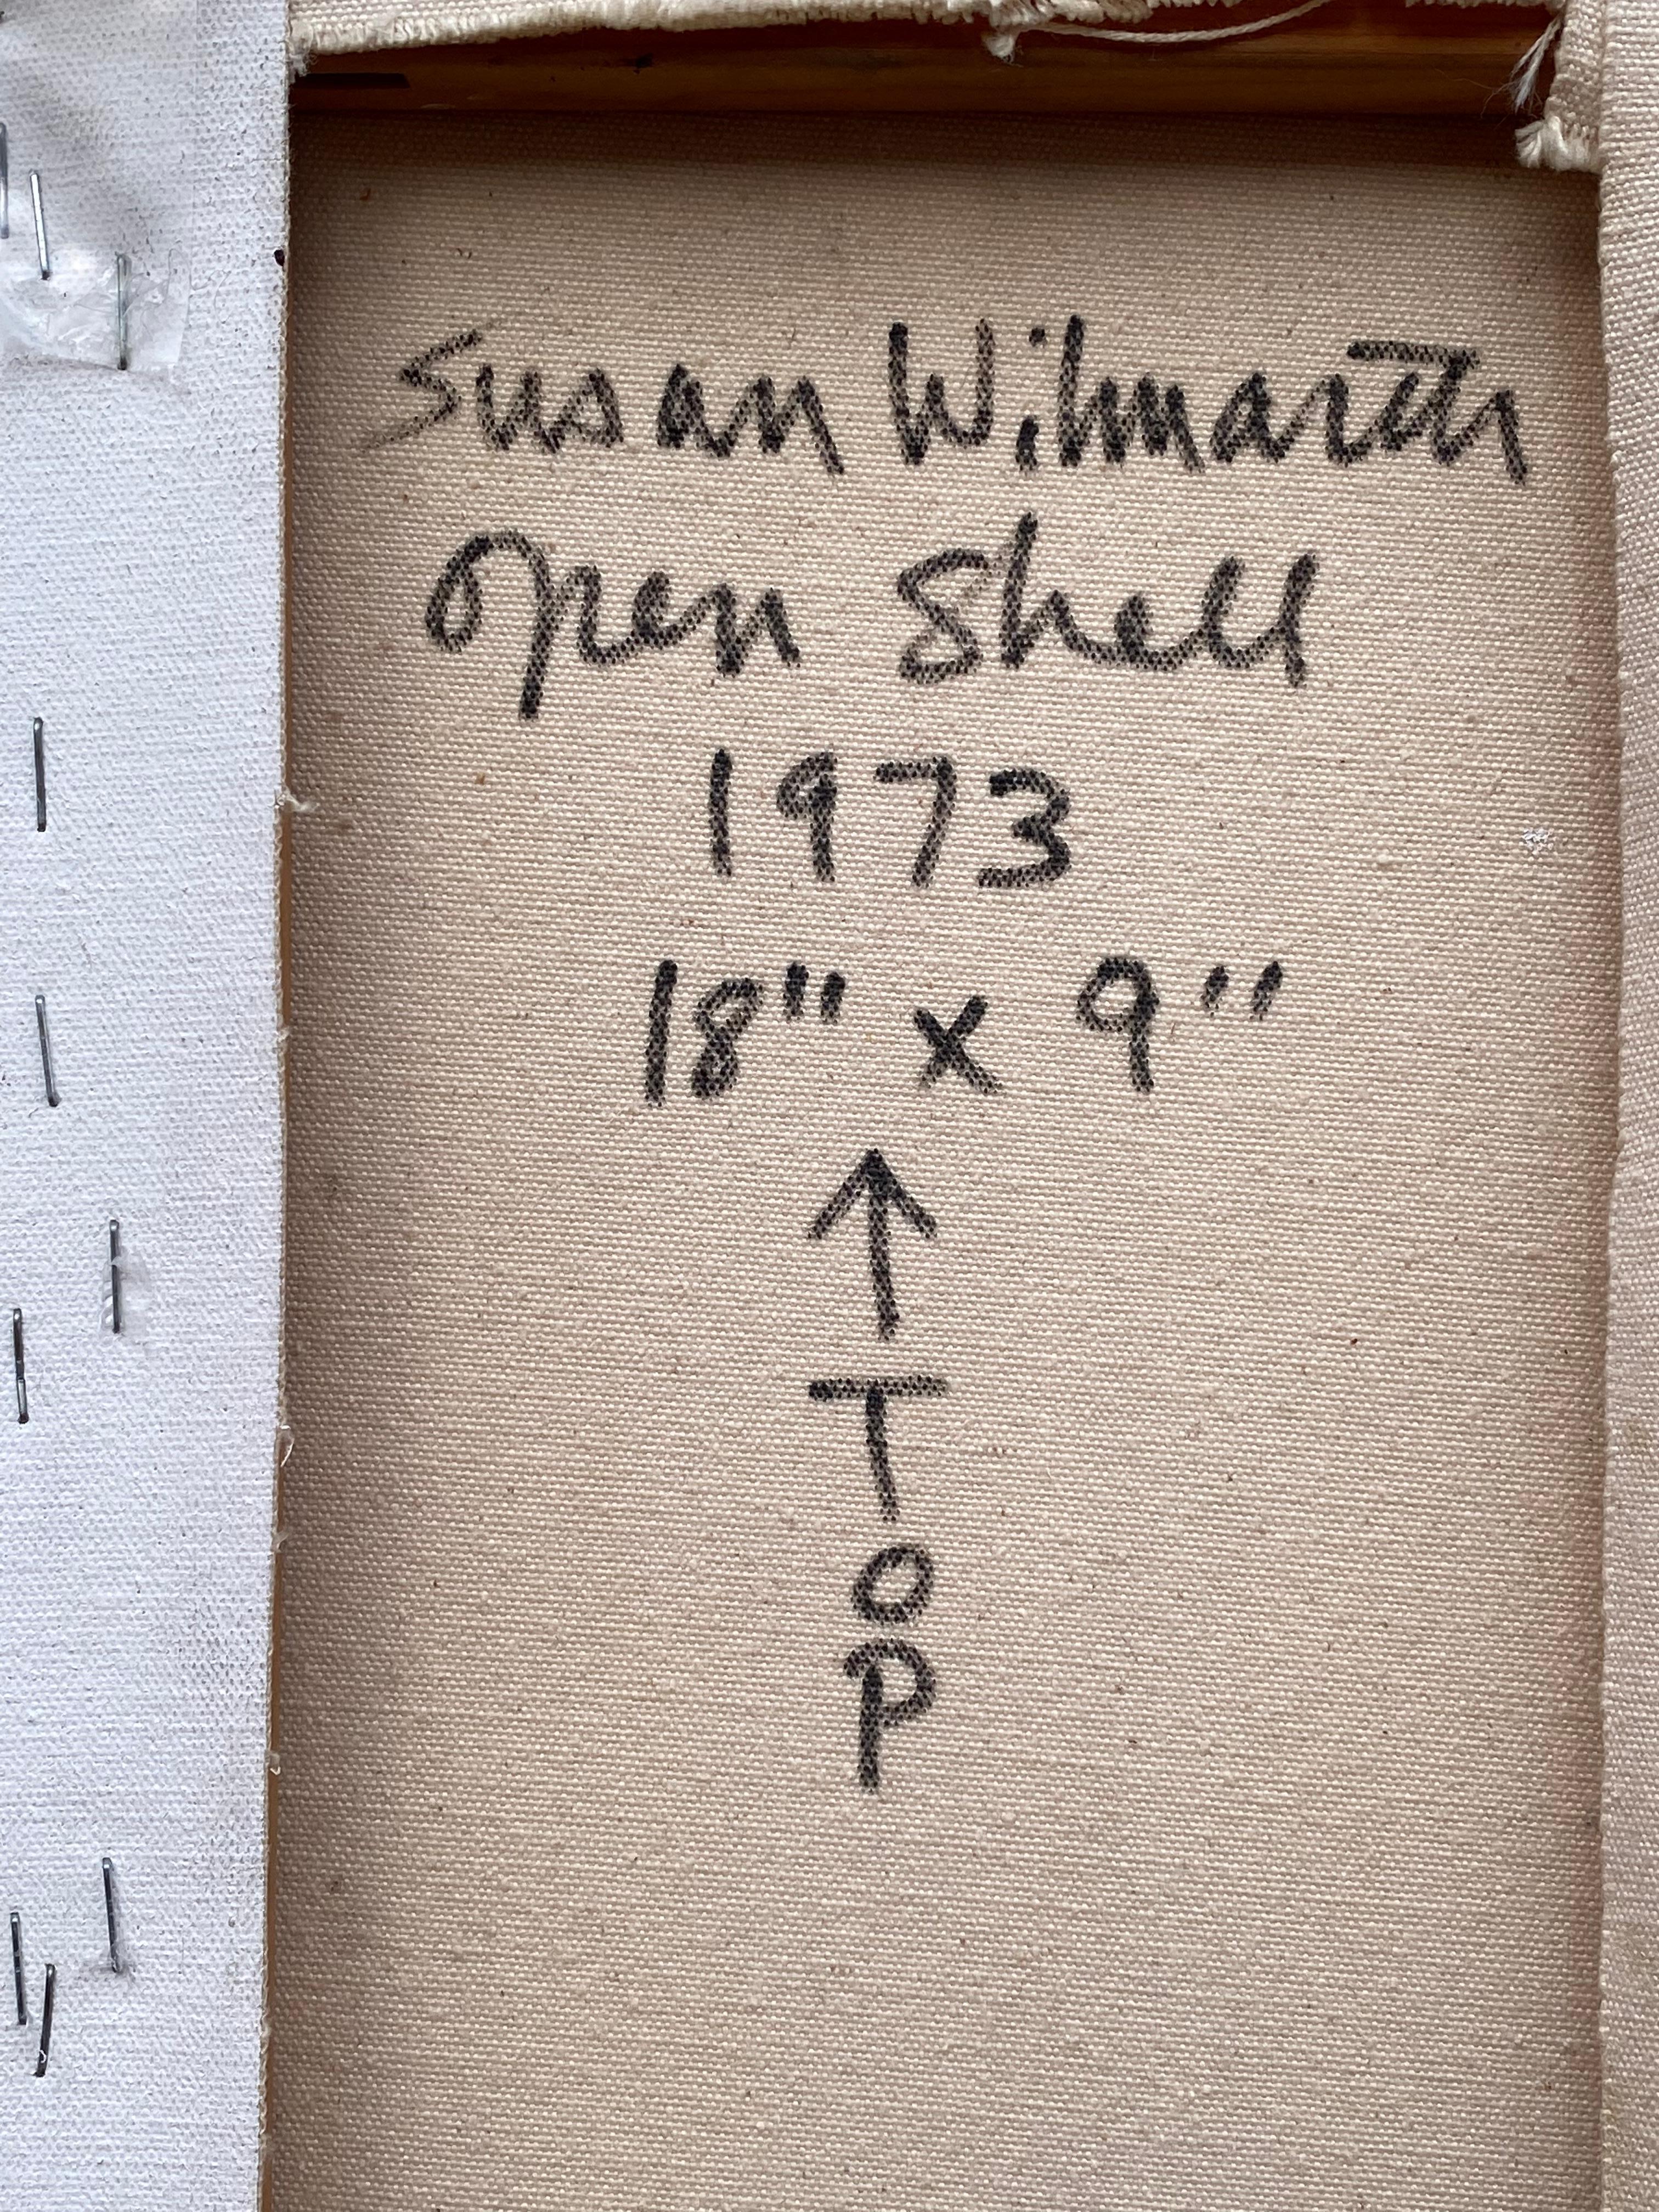 Susan Wilmarth
Open Shell
1973
18" x 9"
↑
T
O
P